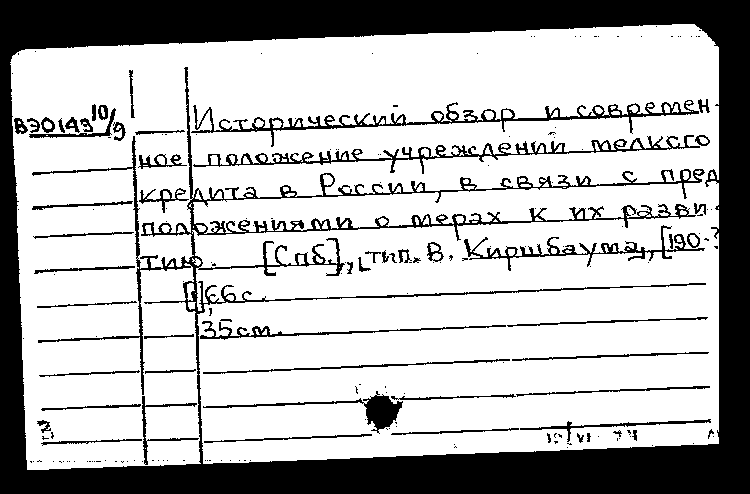 ВЭО143 10/9
Исторический обзор и современ-
ное положение учреждений мелкого
кредита в России, в связи с пред
положениями о мерах к их разви-
тию. [Спб.], тип. В. Киршбаума, [190-?
66 с.
35 см.